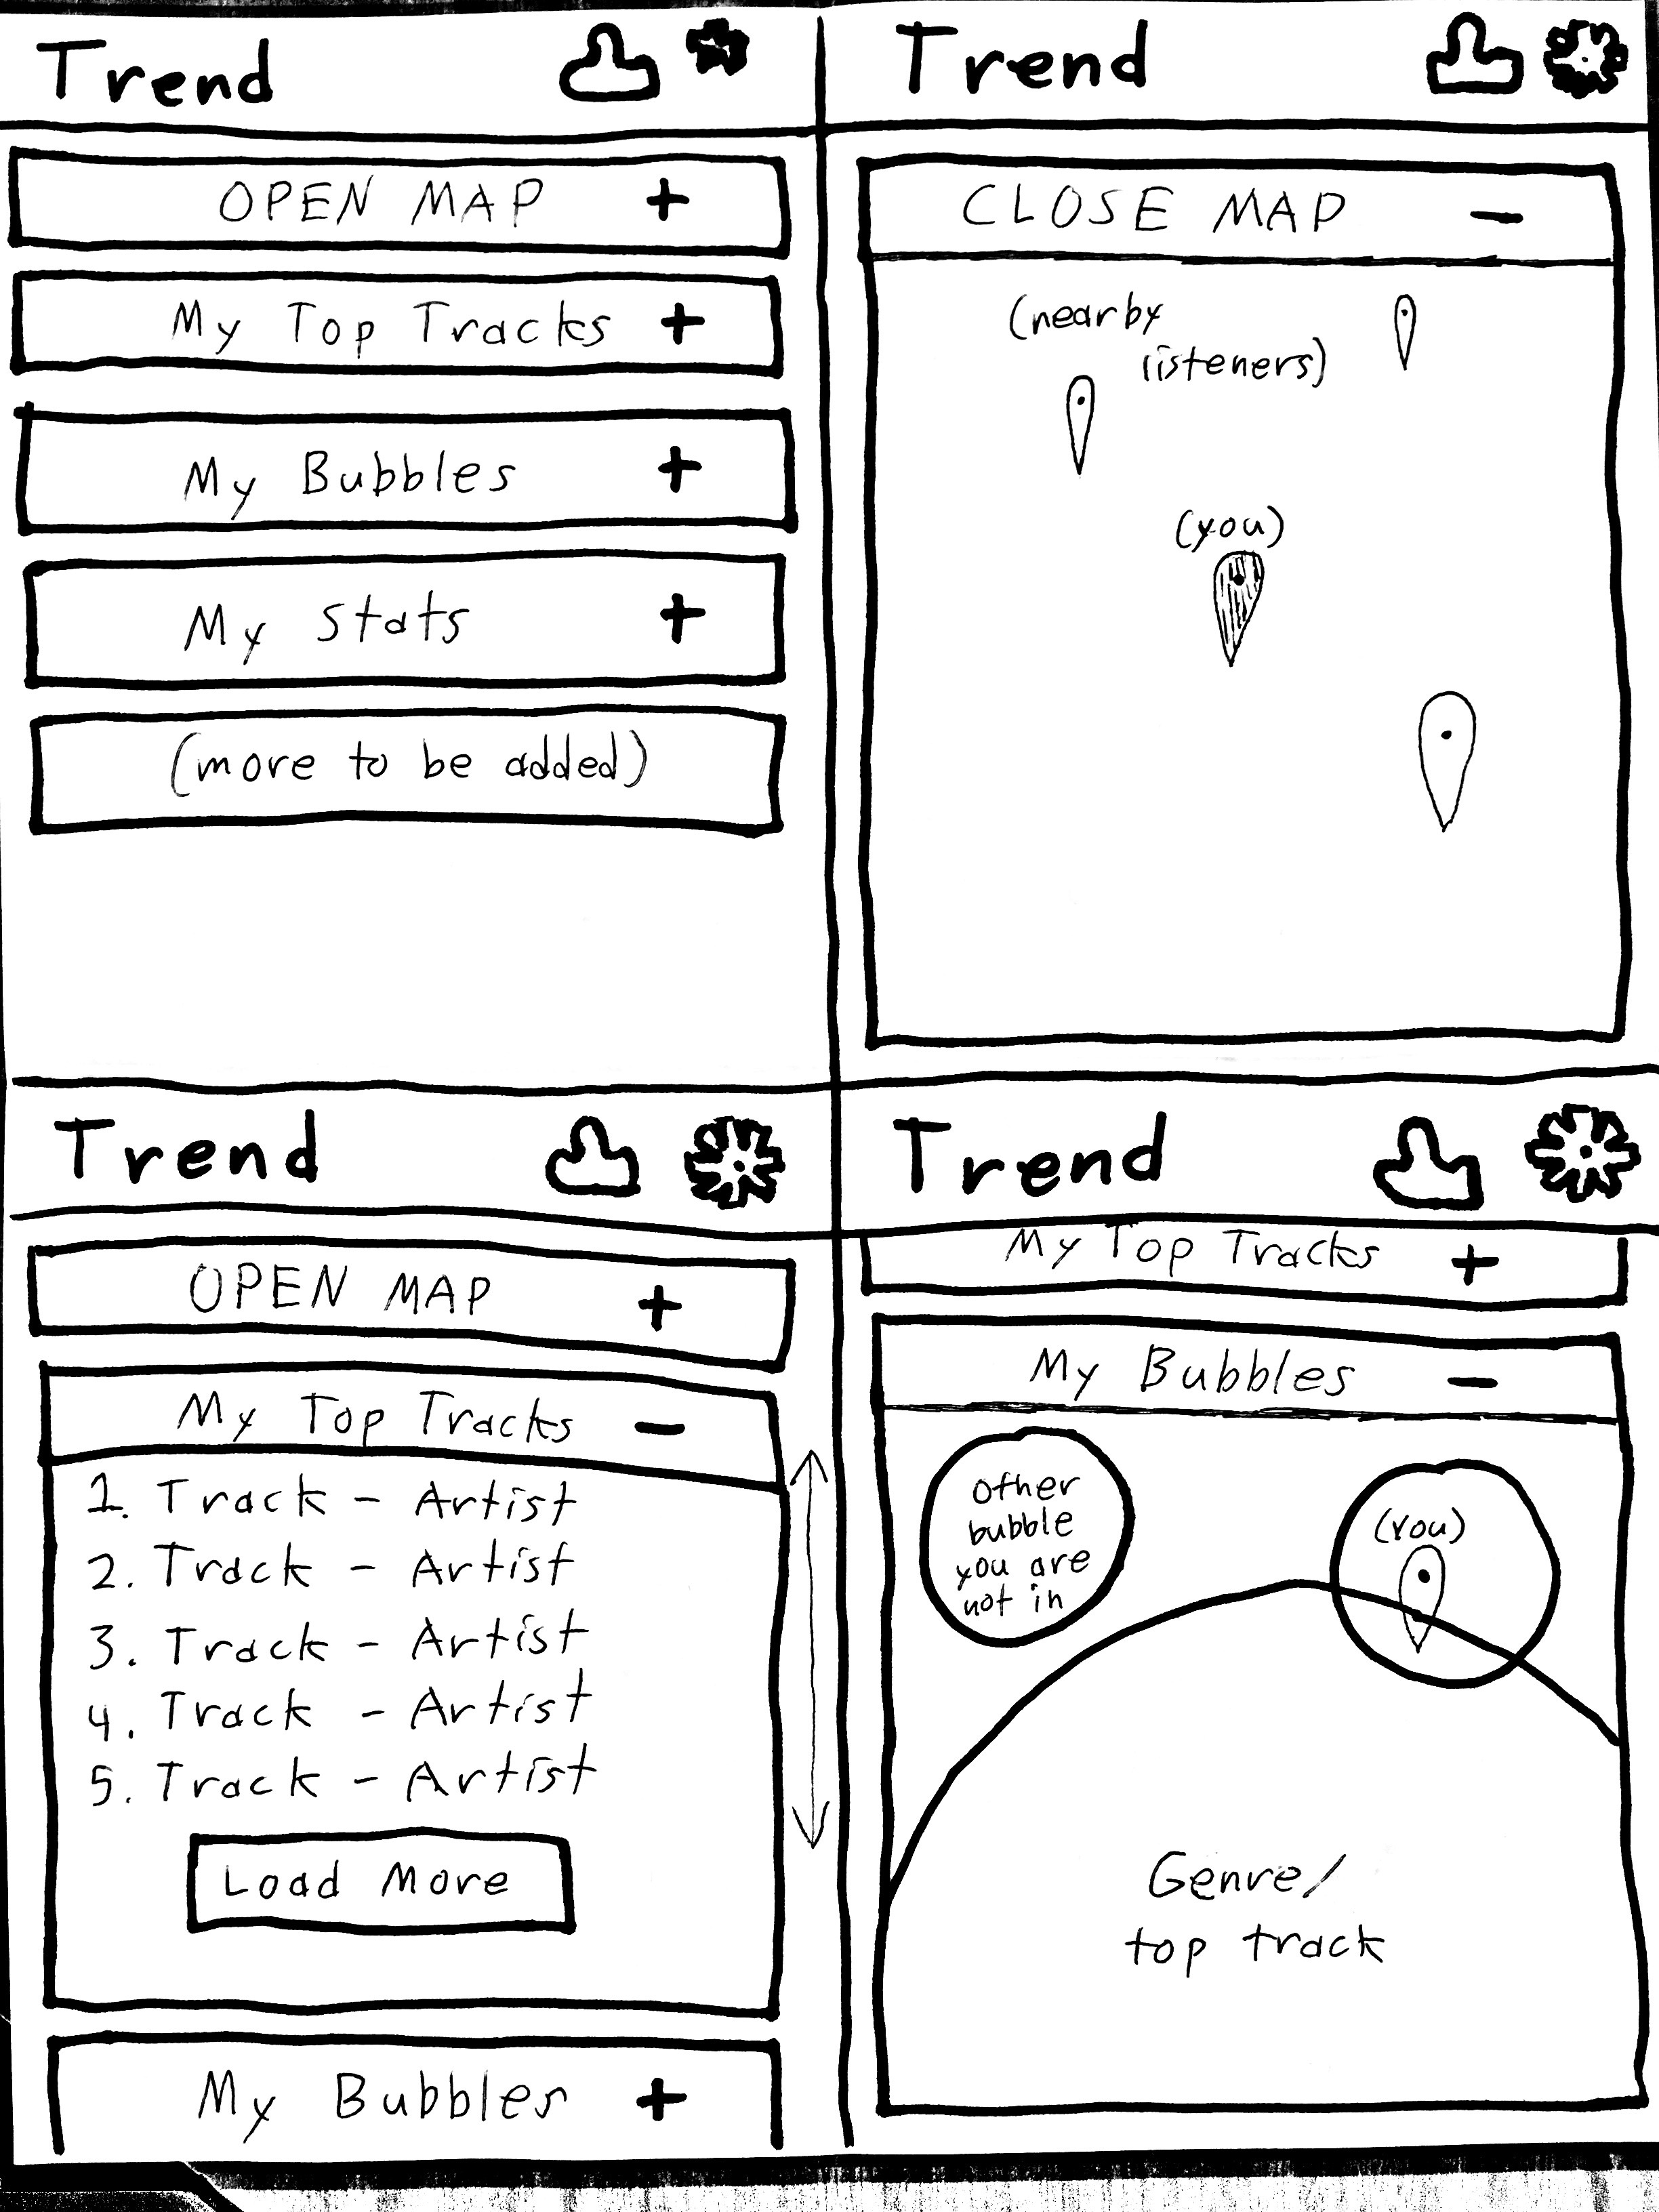 Trend
OPEN MAP +
My Top Tracks +
My Bubbles +
My Stats +
(more to be added)
Trend
CLOSE MAP -
(nearby
listeners)
(you)
Trend
OPEN MAP +
My Top Tracks -
1. Track - Artist
2. Track - Artist
3. Track - Artist
4. Track - Artist
5. Track - Artist
Load More
My Bubbles +
Trend
My Top Tracks +
My Bubbles -
Other
bubble
you are
not in
(You)
Genre/
top track